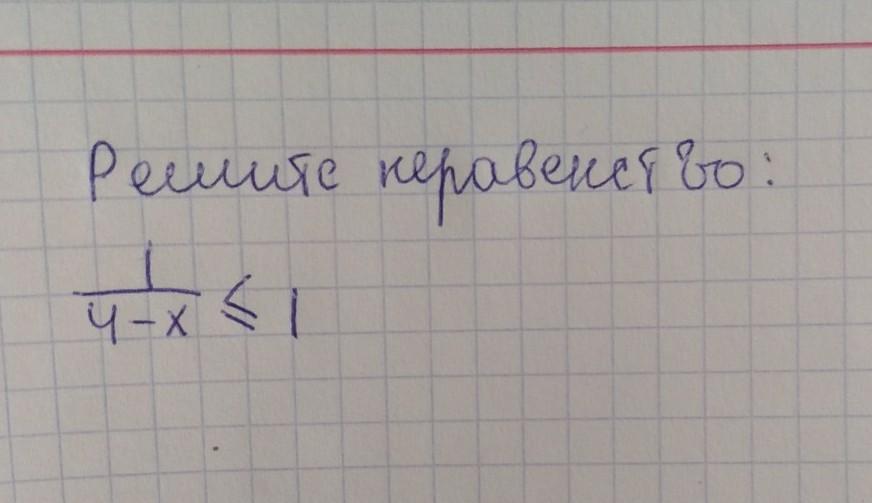 Решите неравенство:
1/(4-x) ≤ 1